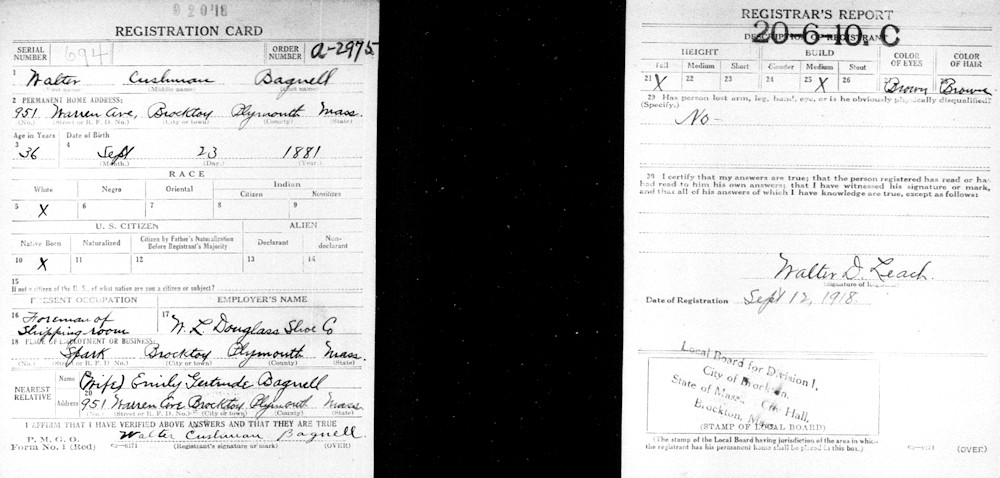 92018
REGISTRATION CARD
SERIAL NUMBER 694 ORDER NUMBER A-2975
1 Walter Cushman Bagnell
(First name) (Middle name) (Last name)
2 PERMANENT HOME ADDRESS:
951 Warren Ave, Brockton Plymouth Mass.
(No.) (Street or R. F. D. No.) (City or town) (County) (State)
Age in Years Date of Birth
3 36 4 Sept 23 1881
(Month.) (Day.) (Year.)
RACE
White Negro Oriental Indian
Citizen Noncitizen
5 X 6 7 8 9
U. S. CITIZEN ALIEN
Native Born Naturalized Citizen by Father's Naturalization Before Registrant's Majority Declarant Non-declarant
10 X 11 12 13 14
15
If not a citizen of the U. S., of what nation are you a citizen or subject?
PRESENT OCCUPATION EMPLOYER'S NAME
16 Foreman of Shipping room 17 W. L Douglass Shoe Co
18 PLACE OF EMPLOYMENT OR BUSINESS:
Spark Brockton Plymouth Mass.
(No.) (Street or R. F. D. No.) (City or town) (County) (State)
NEAREST RELATIVE
Name (Wife) Emily Gertrude Bagnell
20
Address 951 Warren Ave Brockton Plymouth Mass
(No.) (Street or R. F. D. No.) (City or town) (County) (State)
I AFFIRM THAT I HAVE VERIFIED ABOVE ANSWERS AND THAT THEY ARE TRUE
P. M. G. O.
Form No. 1 (Red) Walter Cushman Bagnell
(Registrant's signature or mark) (OVER)
REGISTRAR'S REPORT
DESCRIPTION OF REGISTRANT
20-6-10. C
HEIGHT BUILD COLOR OF EYES COLOR OF HAIR
Tall Medium Short Slender Medium Stout
21 X 22 23 24 25 X 26 Brown Brown
29 Has person lost arm, leg, hand, eye, or is he obviously physically disqualified?
(Specify.)
No-
30 I certify that my answers are true; that the person registered has read or has
had read to him his own answers; that I have witnessed his signature or mark,
and that all of his answers of which I have knowledge are true, except as follows:
Walter D. Leach.
Date of Registration Sept 12, 1918.
Local Board for Division 1,
City of Brockton,
State of Mass. City Hall,
Brockton, Mass.
(STAMP OF LOCAL BOARD)
(The stamp of the Local Board having jurisdiction of the area in which
the registrant has his permanent home shall be placed in this box.)
(OVER)